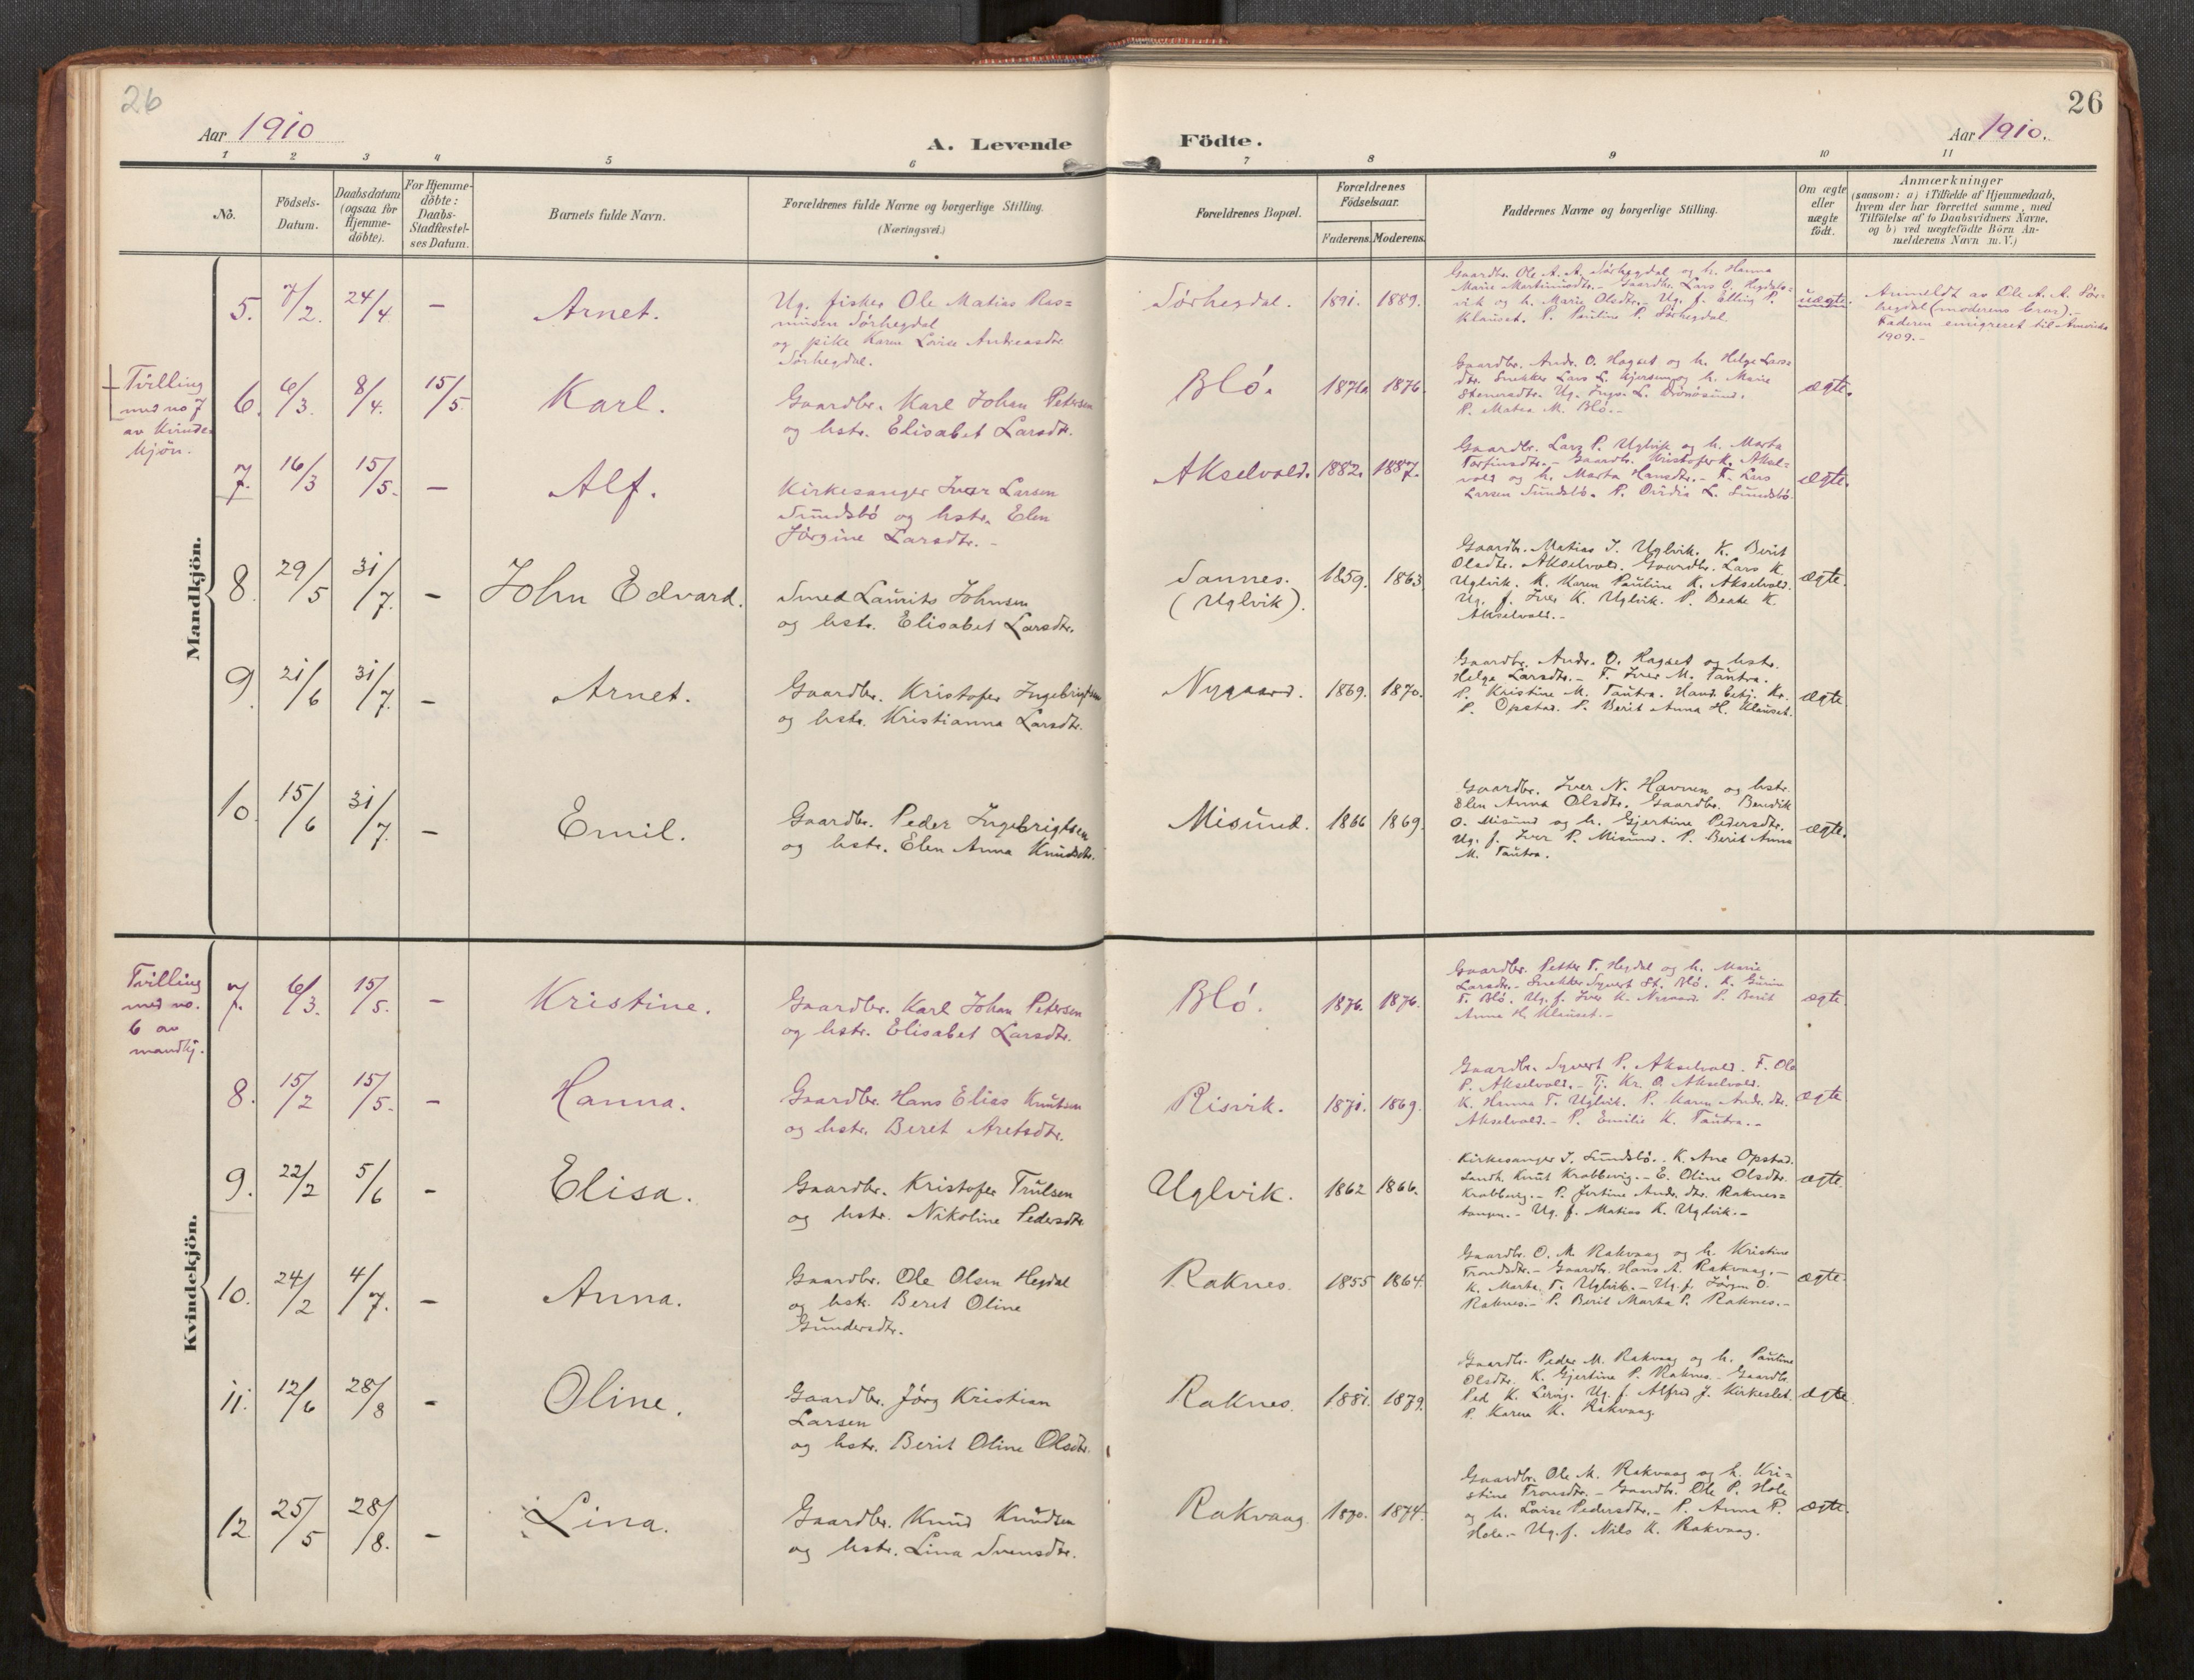 26
26
Aar 1910
A. Levende
Födte.
Aar 1910.
1 2 3 4 5 6 7 8 9 10 11
No.
Födsels-
Datum.
Daabsdatum
(ogsaa for
Hjemme-
döbte).
For Hjemme-
döbte:
Daabs-
Stadfestel-
ses Datum.
Barnets fulde Navn.
Forældrenes fulde Navne og borgerlige Stilling.
(Næringsvei.)
Forældrenes Bopæl.
Forældrenes
Födselsaar.
Faderens. Moderens.
Faddernes Navne og borgerlige Stilling.
Om ægte
eller
uægte
födt.
Anmærkninger
(saasom: a) i Tilfælde af Hjemmedaab,
hvem der har forrettet samme, med
Tilföielse af to Daabsvidners Navne,
og b) ved uægtefödte Börn An-
melderens Navn m. V.)
Mandkjön.
5. 7/2. 24/4 – Arnet.
Ug. fisker Ole Matias Ras=
musen Sørhegdal
og pike Karen Lovise Andreasdtr
Sørhegdal.
Sørhegdal. 1891. 1889.
Gaardbr. Ole A. A. Sørhegdal og h. Hanna
Marie Martinusdtr. - Gaardbr. Lars O. Hegdals=
vik og h. Marie Olsdtr. - Ug. f. Elling P.
Klauset. P. Pauline P. Sørhegdal
uægte.
Anmeldt av Ole A. A. Sør=
hegdal (moderens bror). -
Faderen emigreret til Amerika
1909. -
Tvilling
med no 7
av Kvinde
kjøn.
6. 6/3. 8/4. 15/5. Karl.
Gaardbr. Karl Johan Petersen
og hstr. Elisabet Larsdtr.
Blø. 1876. 1876.
Gaardbr. Andr. O. Hagset og h. Helga Lars
dtr. Snekker Lars L. Gjersum og h. Marie
Stenersdtr. Ug. Inga L. Drønøsund.
P. Matea M. Blø. -
ægte.
7. 16/3 15/5. – Alf.
Kirkesanger Iver Larsen
Sundsbø og hstr. Elen
Jørgine Larsdtr. -
Akselvold. 1882. 1887.
Gaardbr. Lars P. Uglvik og h. Marta
Torfinsdtr. - Gaardbr. Kristofer K. Aksel=
vold og h. Marta Hansdtr. - F. Lars
Larsen Sundsbø. P. Ovidia L. Sundsbø
ægte.
8. 29/5 31/7. – John Edvard.
Smed Laurits Johnsen
og hstr. Elisabet Larsdtr.
Sannes.
(Uglvik).
1859. 1863
Gaardbr. Matias J. Uglvik. K. Berit
Olsdtr. Akselvold. Gaardbr. Lars K.
Uglvik. K. Karen Pauline K. Akselvold.
Ug. f. Iver K. Uglvik. P. Beate K.
Akselvold. -
ægte.
9. 21/6 31/7. – Arnet.
Gaardbr. Kristofer Ingebrigtsen
og hstr. Kristianna Larsdtr.
Nygaard. 1869. 1870.
Gaardbr. Andr. O. Hagset og hstr.
Helga Larsdtr. - F. Iver M. Tautra.
P. Kristine M. Tautra. Hand. betj. Kr.
P. Opstad. P. Berit Anna H. Klauset.
ægte
10. 15/6 31/7. – Emil.
Gaardbr. Peder Ingebrigtsen
og hstr. Elen Anna Knudsdtr.
Misund. 1866 1869.
Gaardbr. Iver N. Havnen og hstr.
Elen Anna Olsdtr. Gaardbr. Bendik
O. Misund og h. Gjertine Pedersdtr.
Ug. f. Iver P. Misund. P. Berit Anna
M. Tautra.
ægte.
Kvindekjön.
Tvilling
med no.
6 av
mandkj.
7. 6/3. 15/5. – Kristine.
Gaardbr. Karl Johan Petersen
og hstr. Elisabet Larsdtr.
Blø. 1876. 1876.
Gaardbr. Petter T. Hegdal og h. Marie
Larsdtr. - Snekker Syvert St. Blø. K. Gurine
T. Blø. Ug. f. Iver K. Nygaard. P. Berit
Anna H. Klauset. -
ægte.
8. 15/2 15/5. – Hanna.
Gaardbr. Hans Elias Knutsen
og hstr. Beret Aretsdtr.
Risvik. 1871. 1869.
Gaardbr. Syvert P. Akselvold. F. Ole
P. Akselvold. - Tj. Kr. O. Akselvold.
K. Hanna T. Uglvik. P. Karen Andr. dtr.
Akselvold. - P. Emilie K. Tautra. -
ægte
9. 22/2 5/6 – Elisa.
Gaardbr. Kristofer Trulsen
og hstr. Nikoline Pedersdtr
Uglvik. 1862 1866.
Kirkesanger I. Sundsbø. - K. Ane Opstad.
Landh. Knut Krabbevig. - E. Oline Olsdtr.
Krabbevig. - P. Jertine Andr. dtr. Raknes=
tangen. - Ug. f. Matias K. Uglvik. -
ægte.
10. 24/2 4/7. – Anna.
Gaardbr. Ole Olsen Hegdal
og hstr. Beret Oline
Gundersdtr.
Raknes. 1855 1864.
Gaardbr. O. M. Rakvaag og h. Kristine
Trondsdtr. - Gaardbr. Hans A. Rakvaag. -
K. Marta T. Uglvik. - Ug. f. Jørgen O.
Raknes. - P. Berit Marta P. Raknes. -
ægte.
11. 12/6 28/8 – Oline.
Gaardbr. Jørg Kristian
Larsen
og hstr. Berit Oline Olsdtr.
Raknes. 1881. 1879.
Gaardbr. Peder M. Rakvaag og h. Pauline
Olsdtr. K. Gjertine P. Raknes. - Gaardbr.
Ped K. Lervig. Ug. f. Alfred J. Kirkeslet.
P. Karen K. Rakvaag.
ægte.
12. 25/5 28/8. – Lina.
Gaardbr. Knud Knudsen
og hstr. Lina Svensdtr.
Rakvaag 1870. 1874.
Gaardbr. Ole M. Rakvaag og h. Kri=
stine Tronsdtr. - Gaardbr. Ole P. Hole
og h. Lovise Pedersdtr. - P. Anna P.
Hole. - Ug. f. Nils K. Rakvaag.
ægte.